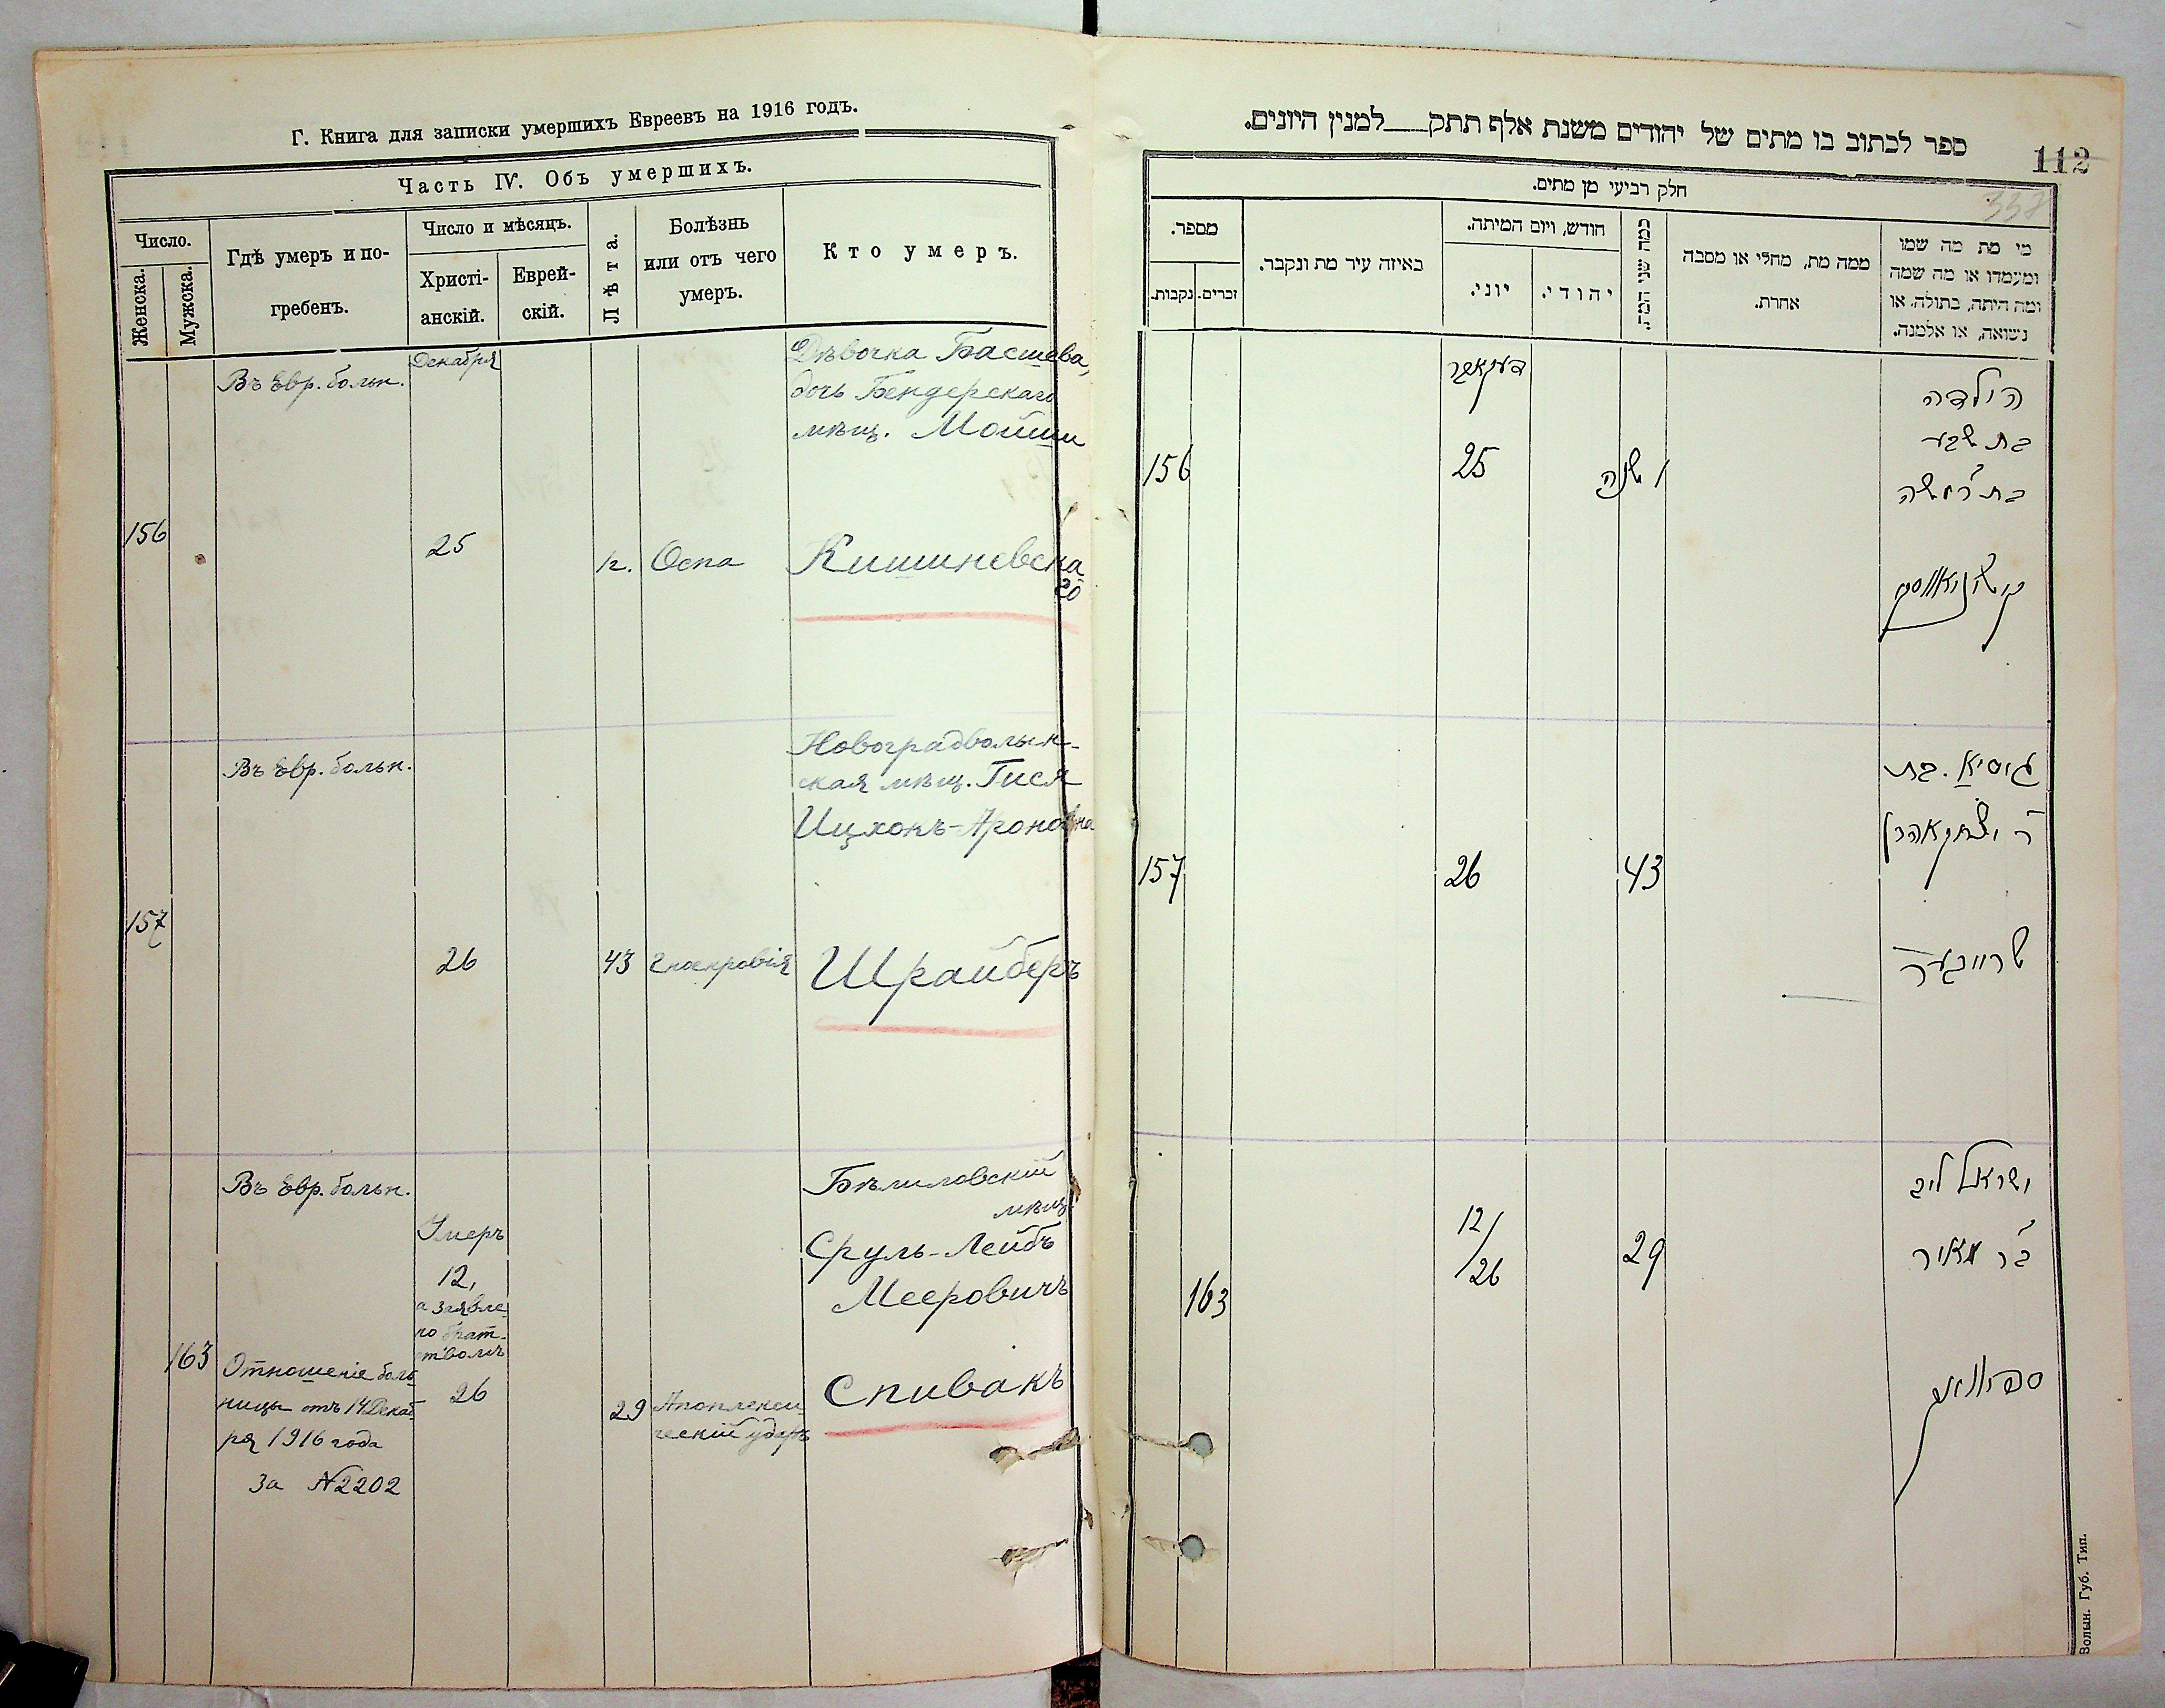 Г. Книга для записки умершихъ Евреевъ на 1916 годъ.
Часть IV. Объ умершихъ.
Число.
Женска.
Мужска.
Гдѣ умеръ и по-
гребенъ.
Число и мѣсяцъ.
Христі-
анскій.
Еврей-
скій.
Лѣта.
Болѣзнь
или отъ чего
умеръ.
Кто умеръ.
Декабря
Въ Евр. больн.
Дѣвочка Басшева,
дочь Бендерскаго
мѣщ. Мойши
156
25
1г.
Оспа
Кишиневска
го
Въ Евр. больн.
Новоградволын-
ская мѣщ. Гися
Ицхокъ-Ароновна
157
26
43
Шрайберъ
Въ Евр. больн.
Бѣлиловскій
мѣщ.
Умеръ
Сруль-Лейбъ
12,
Мееровичъ
а заявле
но брат-
ствомъ
163
Отношеніе боль
ницы отъ 14 Декаб
26
ря 1916 года
за №2202
29
Апоплекси
ческій ударъ
Спивакъ
ספר לכתוב בו מתים של יהודים משנת אלף תתק למנין היונים.
112
338
חלק רביעי מן מתים.
מספר.
נקבות.
זכרים.
באיזה עיר מת ונקבר.
חודש, ויום המיתה.
יוני.
יהודי.
כמה שני המת.
ממה מת, מחלי או מסבה
אחרת.
מי מת מה שמו
ומעמדו או מה שמה
ומה היתה, בתולה, או
נשואה, או אלמנה.
דעקאבר
הילדה
בת שבע
בת ר' משה
156
25
1 שנה
קישינאווסקי
גיסיא בת
ר' יצחק אהרן
157
26
43
שרייבער
ישראל ליב
ב"ר מאיר
12/
/26
29
163
ספיוואק
Волын. Губ. Тип.